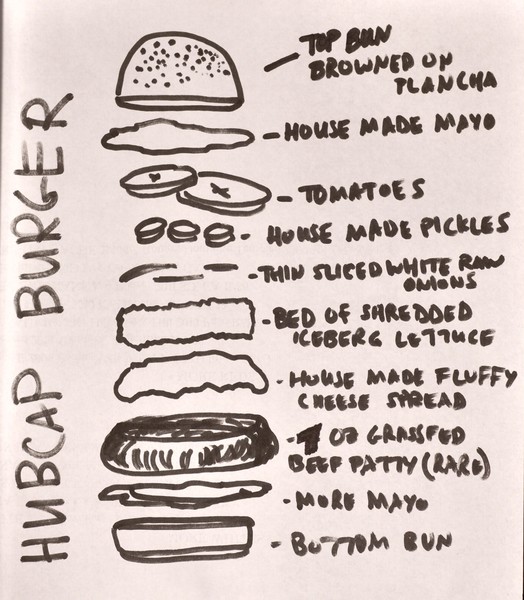 HUBCAP BURGER
TOP BUN
BROWNED ON
PLANCHA
HOUSE MADE MAYO
TOMATOES
HOUSE MADE PICKLES
THIN SLICED WHITE RAW
ONIONS
BED OF SHREDDED
ICEBERG LETTUCE
HOUSE MADE FLUFFY
CHEESE SPREAD
7 OZ GRASSFED
BEEF PATTY (RARE)
MORE MAYO
BOTTOM BUN